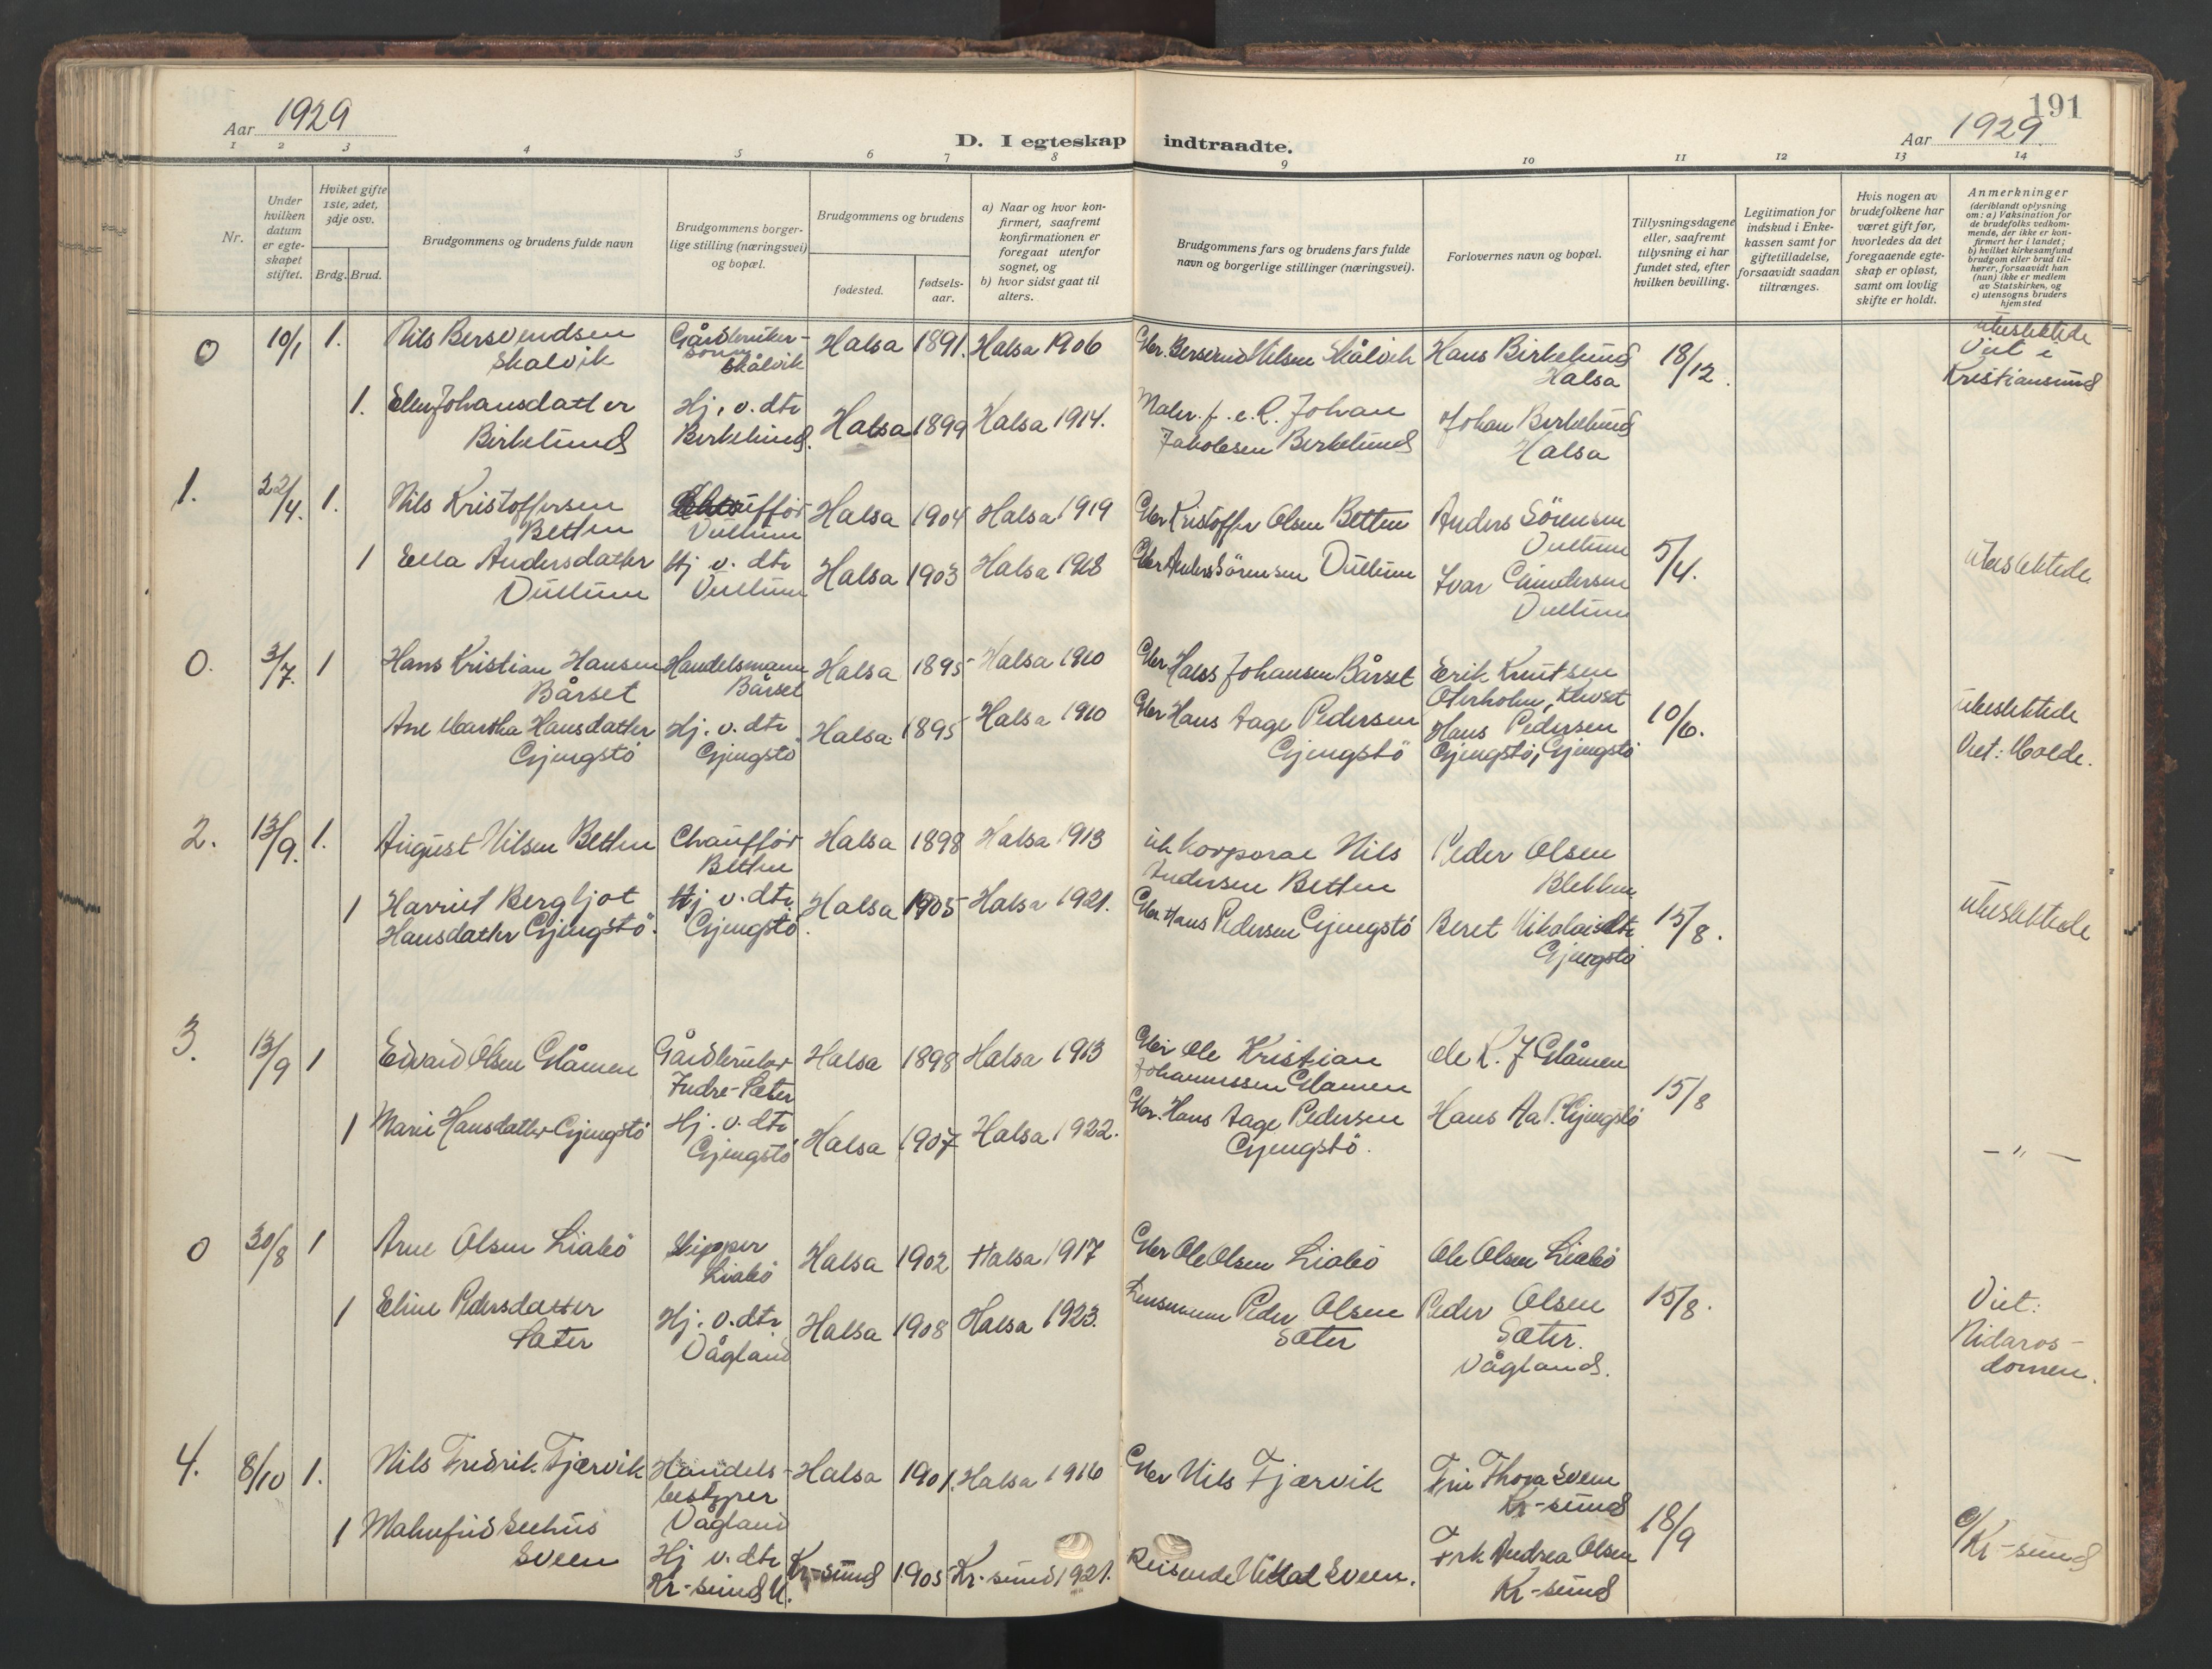 191
Aar 1929
Aar 1929.
D. I egteskap indtraadte.
1 2 3 4 5 6 7 8 9 10 11 12 13 14
Nr.
Under hvilken datum er egte-skapet stiftet.
Hviket gifte 1ste, 2det, 3dje osv.
Brdg. Brud.
Brudgommens og brudens fulde navn
Brudgommens borger-lige stilling (næringsvei) og bopæl.
Brudgommens og brudens
fødested.
fødsels-aar.
a) Naar og hvor kon-firmert, saafremt konfirmationen er foregaat utenfor sognet, og
b) hvor sidst gaat til alters.
Brudgommens fars og brudens fars fulde navn og borgerlige stillinger (næringsvei).
Forlovernes navn og bopæl.
Tillysningsdagene eller, saafremt tillysning ei har fundet sted, efter hvilken bevilling.
Legitimation for indskud i Enke-kassen samt for giftetilladelse, forsaavidt saadan tiltrænges.
Hvis nogen av brudefolkene har været gift før, hvorledes da det foregaaende egte-skap er opløst, samt om lovlig skifte er holdt.
Anmerkninger (deriblandt oplysning om: a) Vaksination for de brudefolks vedkom-mende, der ikke er kon-firmert her i landet; b) hvilket kirkesamfund brudgom eller brud til-hører, forsaavidt han (hun) ikke er medlem av Statskirken, og c) utensogns bruders hjemsted
0 10/1 1. Nils Bersvendsen Skalvik Gårdbruker-sønn Skålvik Halsa 1891. Halsa 1906 Gbr. Bersvend Nilsen Skålvik Hans Birkelund Halsa 18/12. ubeslektede Viet i Kristiansund
1. Ellen Johansdatter Birkelund Hj. v. dtr Birkelund. Halsa 1899 Halsa 1914. Maler. f. e. l. Johan Jakobsen Birkelund Johan Birkelund Halsa
1. 22/4. 1. Nils Kristoffersen Betten Chauffør Vullum Halsa 1904 Halsa 1919 Gbr Kristoffer Olsen Betten Anders Sörensen Vullum 5/4.
1 Ella Andersdatter Vullum Hj v. dtr Vullum Halsa 1903 Halsa 1918 Gbr Anders Sörensen Vullum Ivar Gundersen Vullum ubeslektede
0. 3/7. 1 Hans Kristian Hansen Bårset Handelsmann Bårset Halsa 1895 Halsa 1910 Gbr Hans Johansen Bårset Erik Knutsen Oterholm, 10/6. ubeslektede
Ane Martha Hansdatter Gjengstö Hj. v. dtr. Gjengstö Halsa 1895 Halsa 1910 Gbr Hans Aage Pedersen Gjengstö Hans Pedersen Gjengstö, Gjengstö Viet: Molde.
2. 13/9. 1. August Nilsen Betten Chauffør Betten Halsa 1898 Halsa 1913 korporal Nils Andersen Betten Peder Olsen Blekken
1 Harriet Bergljot Hansdatter Gjengstö. Hj v. dtr. Gjengstö. Halsa 1905 Halsa 1921. Gbr. Hans Pedersen Gjengstö Beret Nikolaisdtr Gjengstö 15/8. ubeslektede
3. 13/9 1 Edvard Olsen Glåmen Gårdbruker Indre-Sæter Halsa 1898 Halsa 1913 Gbr Ole Kristian Johannessen Glåmen Ole K. J Glåmen 15/8
1 Marie Hansdatter Gjengstö Hj. v. dtr Gjengstö Halsa 1907 Halsa 1922. Gbr. Hans Aage Pedersen Gjengstö. Hans Aa P. Gjengstö — " —
0 30/8 1 Arne Olsen Liabö Skipper Liabö Halsa 1902 Halsa 1917 Gbr Ole Olsen Liabö Ole Olsen Liabö 15/8.
1 Eline Pedersdatter Sæter Hj. v. dtr. Vågland Halsa 1908 Halsa 1923. Lensmann Peder Olsen Sæter Peder Olsen Sæter. Vågland. Viet: Nidaros-domen.
4. 8/10 1. Nils Fredrik Fjærvik Handels-bestyrer Vågland Halsa 1901. Halsa 1916 Gbr Nils Fjærvik Fru Thora Sveen Kr-sund 18/9
1 Malmfrid Seehus Sveen Hj v. dtr Kr-sund N. Kr-sund 1905 Kr-sund 1921. Reisende Sveen. Frk Andrea Olsen Kr-sund c/ Kr-sund